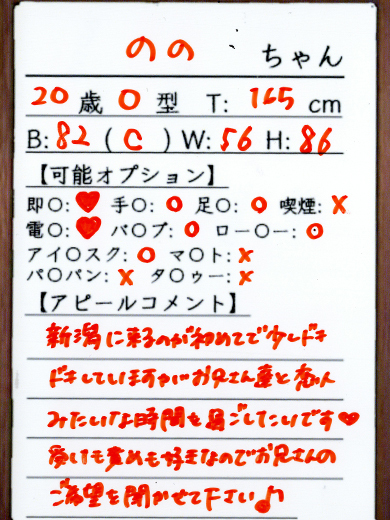 のの ちゃん
20歳 O型 T: 165cm
B:82(C)W:56 H:86
【可能オプション】
即〇:♥ 手〇:o 足〇:o 喫煙:x
電〇:♥ バ〇ブ:o ロー〇ー:o
アイ〇スク:o マ〇ト:x
パ〇パン:x タ〇ゥー:x
【アピールコメント】
新潟に来るのが初めてで少しドキ
ドキしていますがお兄さん達と恋人
みたいな時間を過ごしたいです♥
受けも責めも好きなのでお兄さんの
ご希望を聞かせて下さい♪